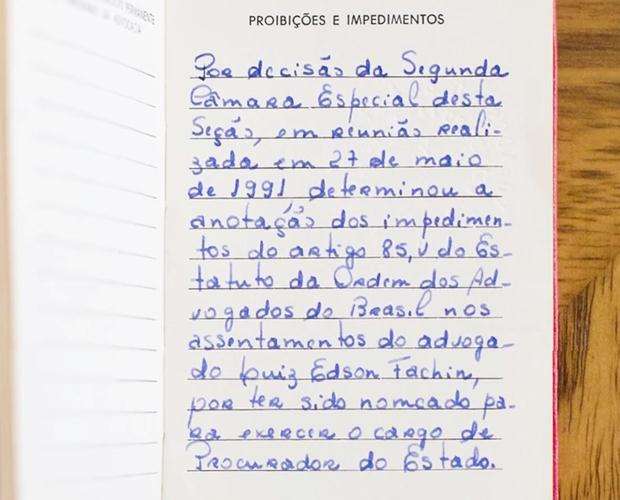 PROIBIÇÕES E IMPEDIMENTOS
Por decisão da Segunda
Câmara Especial desta
Seção, em reunião reali-
zada em 27 de maio
de 1991 determinou a
anotação dos impedimen-
tos do artigo 85, V do Es-
tatuto da Ordem dos Ad-
vogados do Brasil nos
assentamentos do advoga-
do Luiz Edson Fachin,
por ter sido nomeado pa-
ra exercer o cargo de
Procurador do Estado.